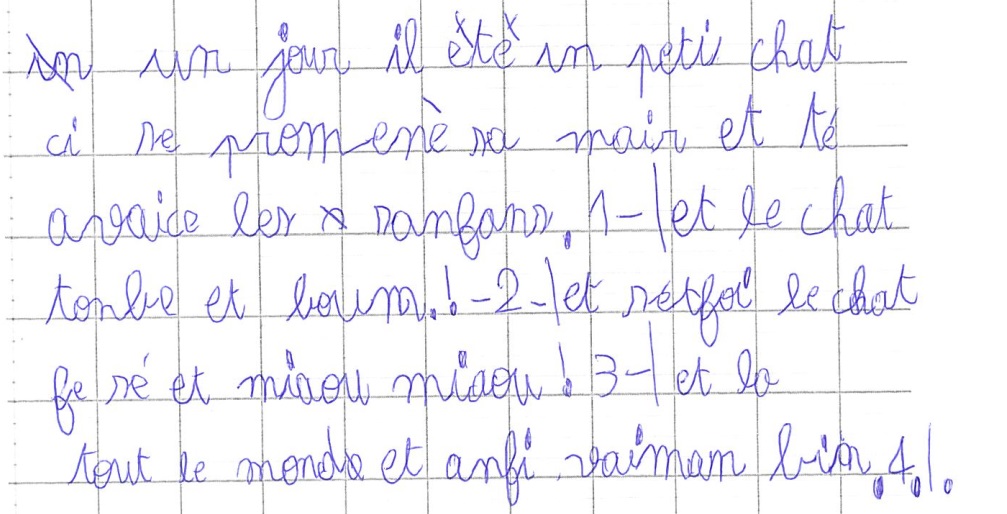 un un jour il été un peti chat
ci se promenè sa mair et té
avaice les sanfans. 1-|et le chat
tonbe et boum.! -2-|et setfoi le chat
fe sé et miaou miaou ! 3-|et la
tout le monde et anfi vaimam bin.4.!.